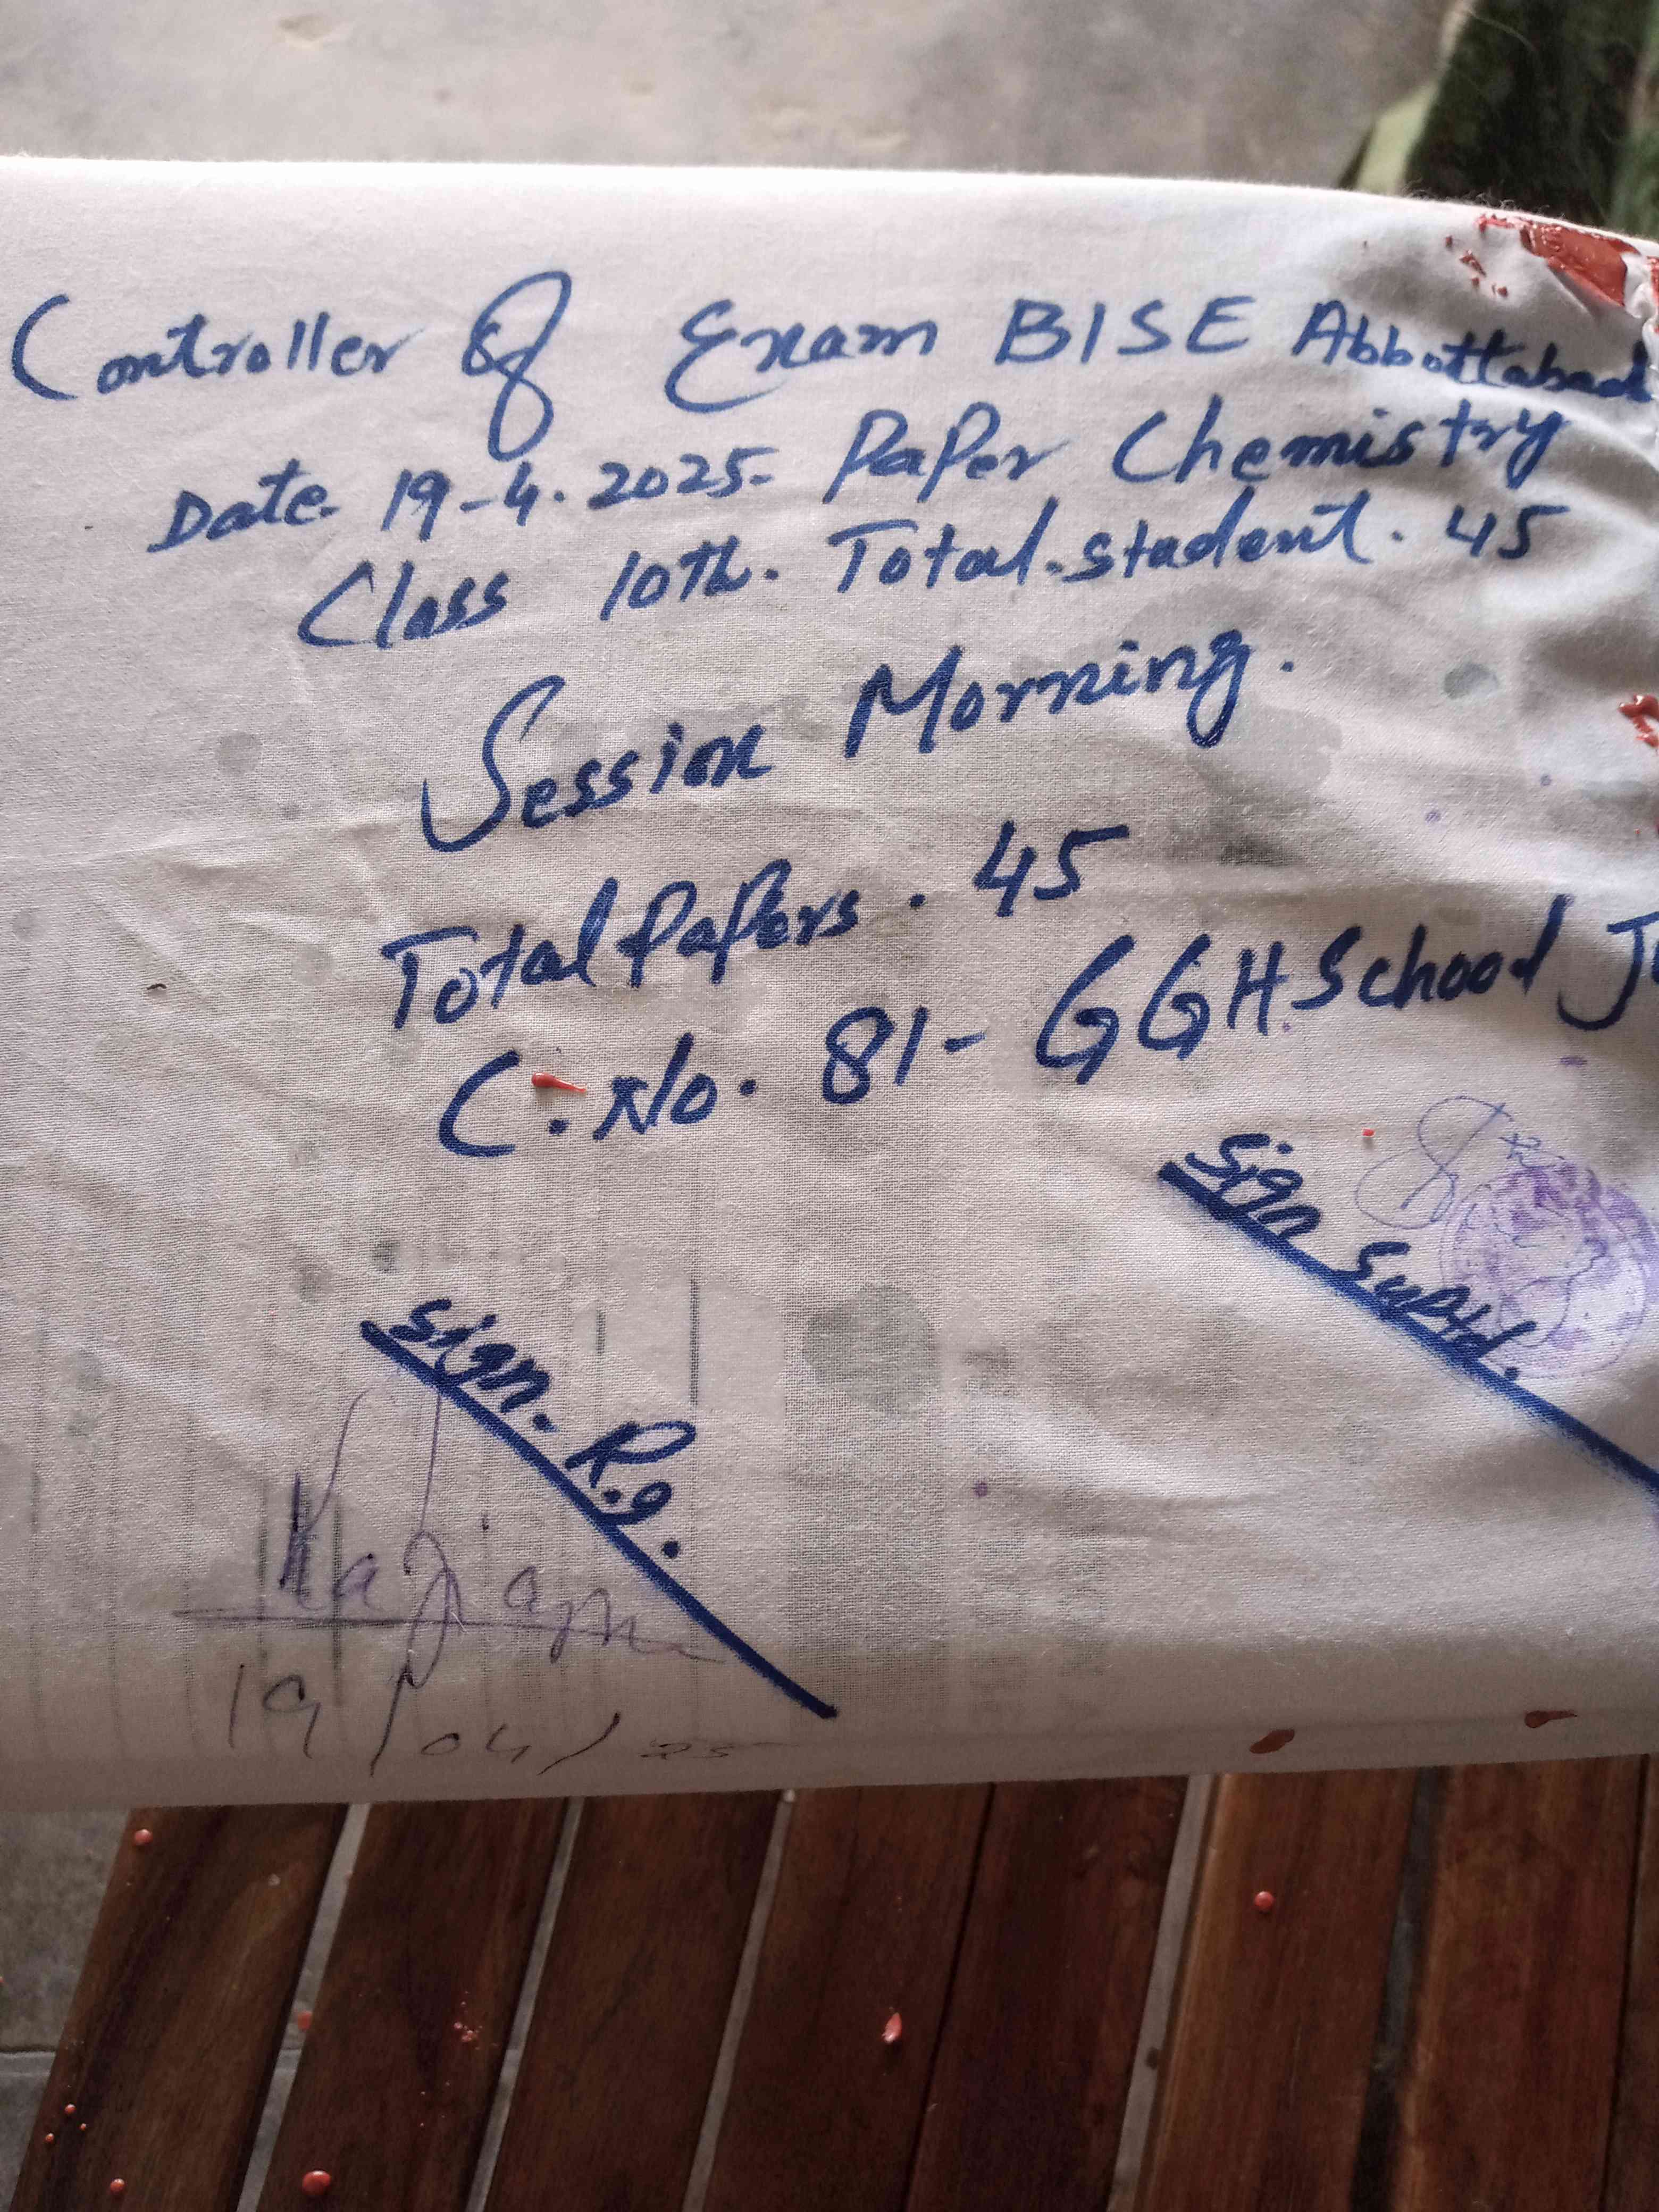 Controller Of Exam BISE Abbottabad
Date. 19-4.2025. Paper Chemistry
Class 10th. Total.student. 45
Session Morning.
Total Papers. 45
C. No. 81- GGH School J
Sign Suptd.
Sign. R.I.
19/04/25